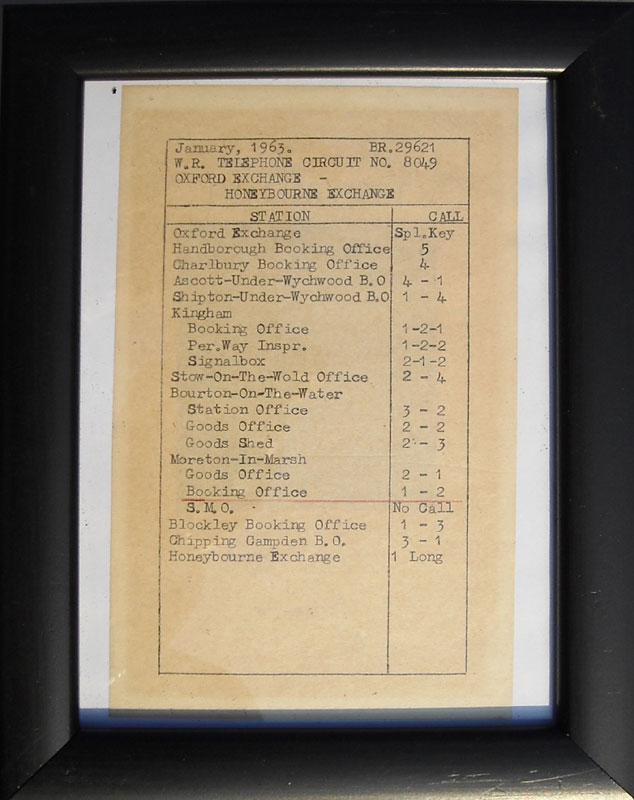 January, 1963. BR.29621
W.R. TELEPHONE CIRCUIT NO. 8049
OXFORD EXCHANGE -
HONEYBOURNE EXCHANGE
STATION CALL
Oxford Exchange Spl.Key
Handborough Booking Office 5
Charlbury Booking Office 4
Ascott-Under-Wychwood B.O 4 - 1
Shipton-Under-Wychwood B.O 1 - 4
Kingham
Booking Office 1-2-1
Per.Way Inspr. 1-2-2
Signalbox 2-1-2
Stow-On-The-Wold Office 2 - 4
Bourton-On-The-Water
Station Office 3 - 2
Goods Office 2 - 2
Goods Shed 2 - 3
Moreton-In-Marsh
Goods Office 2 - 1
Booking Office 1 - 2
S.M.O. No Call
Blockley Booking Office 1 - 3
Chipping Campden B.O. 3 - 1
Honeybourne Exchange 1 Long